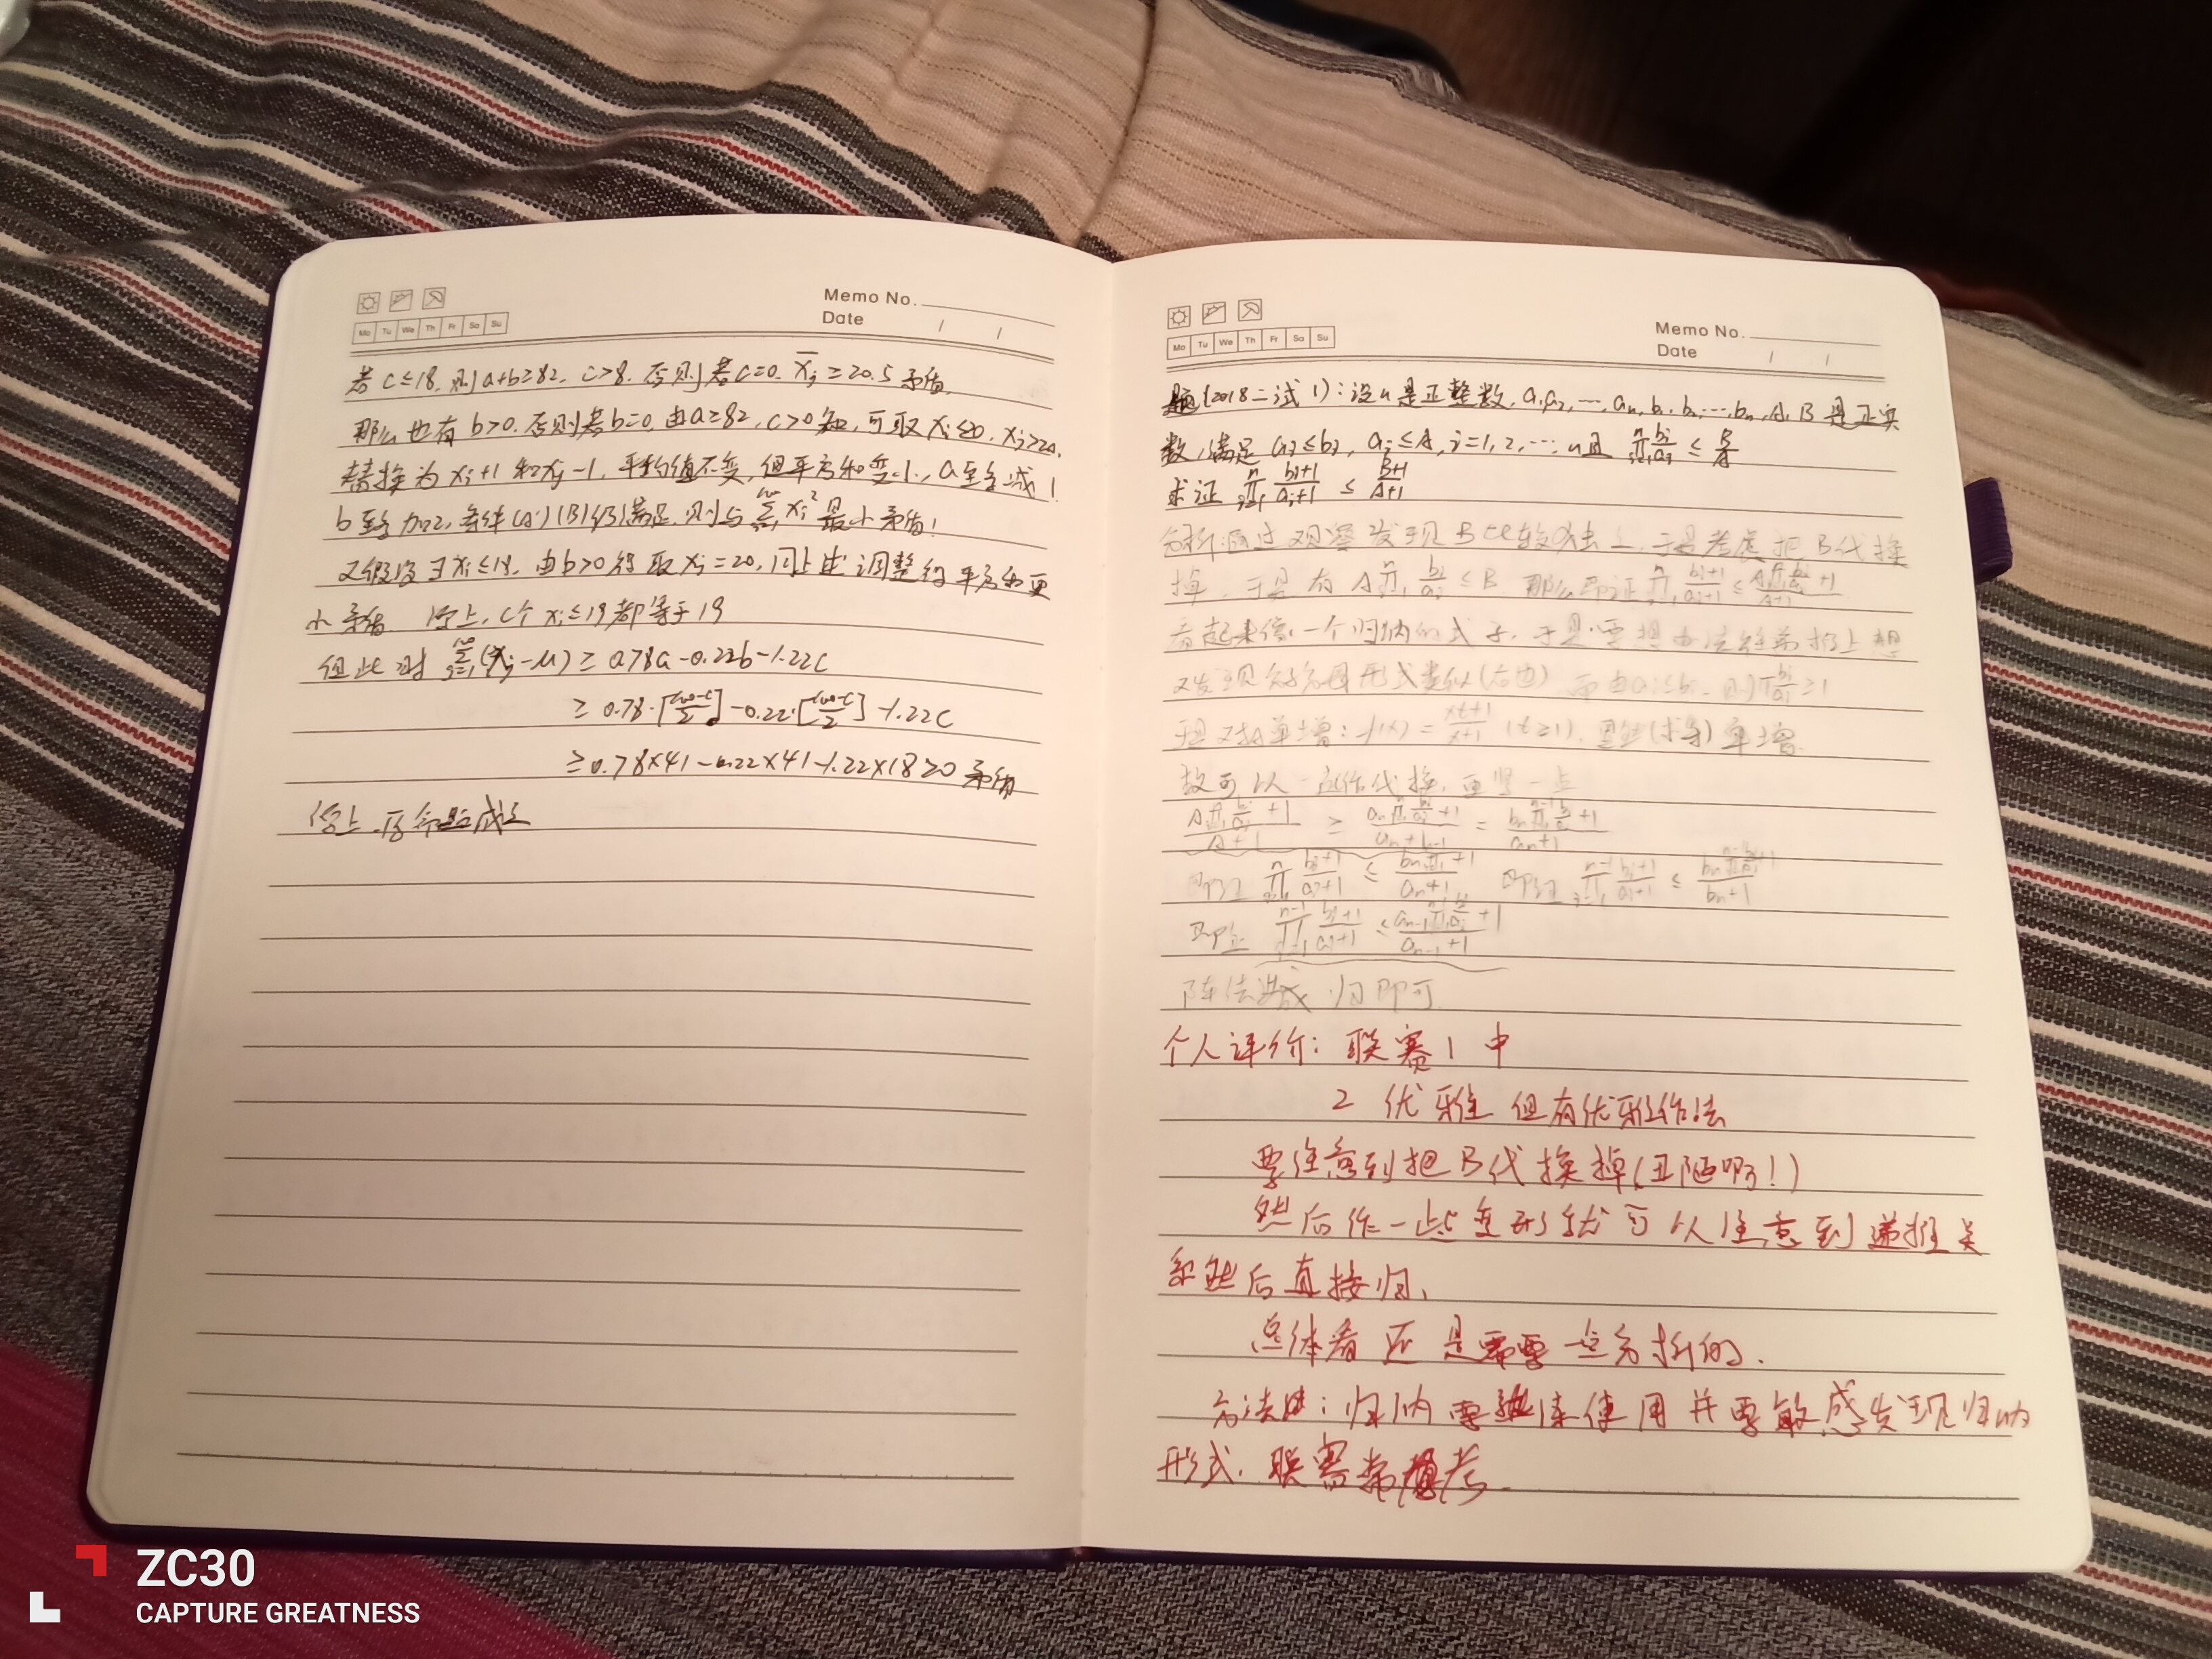 Memo No.
Date / /
Mo Tu We Th Fr Sa Su
若c≤18,则a+b≥82, c>8.否则若c=0. x̄ⱼ≥20.5矛盾.
那么也有b>0.否则若b=0,由a≥82,c>0知,可取xᵢ≤20,xⱼ>20,
替换为xᵢ+1和xⱼ-1,平均值不变,但平方和变小,a至多减1
b至多加2,条件(B)仍满足.则与∑xᵢ²最小矛盾!
又假设∃xᵢ≤18.由b>0得取xⱼ=20,同上述调整得平方和更
小矛盾 综上,c个xᵢ≤19都等于19
但此时 ∑(xⱼ-μ)≥0.78a-0.22b-1.22c
≥0.78·[(100-c)/2]-0.22·[(100-c)/2]-1.22c
≥0.78×41-0.22×41-1.22×18>0 矛盾
综上.原命题成立
Memo No.
Date / /
Mo Tu We Th Fr Sa Su
题(2018二试1):设n是正整数,a₁,a₂,…,aₙ,b₁,b₂,…,bₙ,A,B是正实
数,满足aᵢ≤bᵢ,aᵢ≤A,i=1,2,…,n且 ∏bᵢ/aᵢ ≤ B/A
求证 ∏(bᵢ+1)/(aᵢ+1) ≤ (B+1)/(A+1)
分析:通过观察发现B比较,于是考虑把B代换
掉.于是有 A∏bᵢ/aᵢ ≤ B 那么即证∏(bᵢ+1)/(aᵢ+1) ≤ (A∏bᵢ/aᵢ+1)/(A+1)
看起来像一个归纳的式子,于是要想办法往上想
又发现分子分母形式类似(右边) 而由aᵢ≤bᵢ,则∏bᵢ/aᵢ≥1
于是对A单增:f(x)=(xt+1)/(x+1) (t≥1).显然(求导)单增.
故可以一定作代换,更紧一点
(A∏bᵢ/aᵢ+1)/(A+1) ≥ (aₙ∏bᵢ/aᵢ+1)/(aₙ+1) = (bₙ∏bᵢ/aᵢ+1)/(aₙ+1)
即证∏(bᵢ+1)/(aᵢ+1) ≤ (bₙ∏bᵢ/aᵢ+1)/(aₙ+1) 即证∏(bᵢ+1)/(aᵢ+1) ≤ (bₙ∏bᵢ/aᵢ+1)/(bₙ+1)
即证 ∏(bᵢ+1)/(aᵢ+1) ≤ (aₙ₋₁∏bᵢ/aᵢ+1)/(aₙ₋₁+1)
归即可.
个人评价: 联赛1 中
2 优雅 但有优雅作法
要注意到把B代换掉(丑陋啊!)
然后作一些变形就可以注意到递推关
系然后直接归.
总体看还是需要一点分析的.
方法性:归纳要 使用并要敏感发现归纳
形式.联赛常 考.
ZC30
CAPTURE GREATNESS